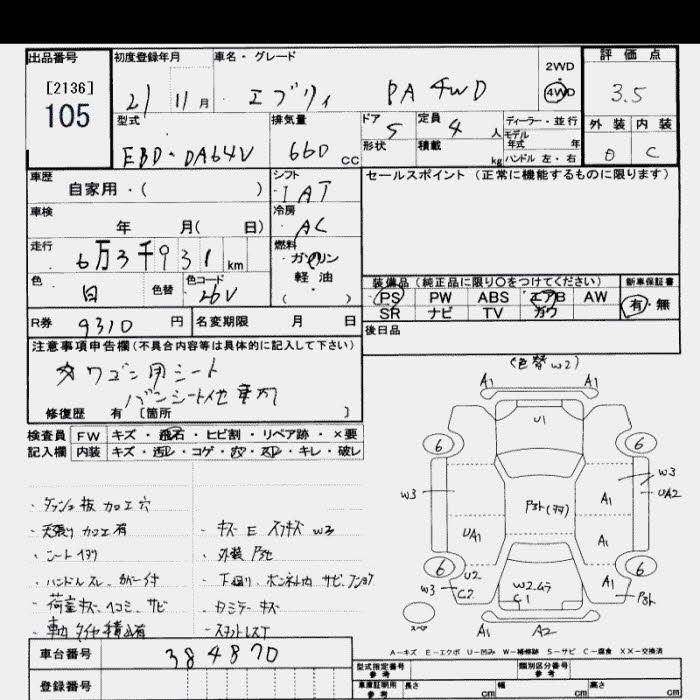 出品番号
[2136]
105
初度登録年月
21 11月
車名・グレード
エブリィ PA 4WD
2WD
4WD
評価点
3.5
外装 内装
D C
型式
EBD-DA64V
排気量
660 CC
ドア
5
形状
定員
4 人
積載
kg
ディーラー・並行
モデル
年式 年
ハンドル 左・右
車歴
自家用・( )
シフト
IAT
セールスポイント (正常に機能するものに限ります)
車検
年 月( 日)
冷房
AC
走行
6万3千931km
燃料
ガソリン
軽油
( )
色
白
色替
色コード
26V
装備品(純正品に限り○をつけてください)
PS PW ABS エアB AW
SR ナビ TV カワ
新車保証書
有・無
R券 9310円
名変期限 月 日
後日品
注意事項申告欄(不具合内容等は具体的に記入して下さい)
ワゴン用シート
バンシート他車
修復歴 有 [箇所 ]
検査員 FW キズ・飛石・ヒビ割・リペア跡・×要
記入欄 内装 キズ・汚レ・コゲ・穴・スレ・キレ・破レ
・ダッシュ板 加工穴
・天張リ カロエ 有
・ハンドルスレ カバー付
・荷室キズ ヘコミ サビ
・キズ E スリキズ W3
・外装 P他
・下廻リ、ボンネット内 サビ
(色替W2)
A1 A1
U1
6 6
W3
W3
UA2
Pヨト
A1
UA1
A1
6 6
U2
W3 C2
W2ムラ
C1
A1
Pヨト
スペア
A1 A2
A-キズ E-エクボ U-凹み W-補修跡 S-サビ C-腐食 XX-交換済
車台番号 384870
登録番号
型式指定番号
参考
類別区分番号
参考
車庫証明用
参考
長さ cm
幅 cm
高さ cm